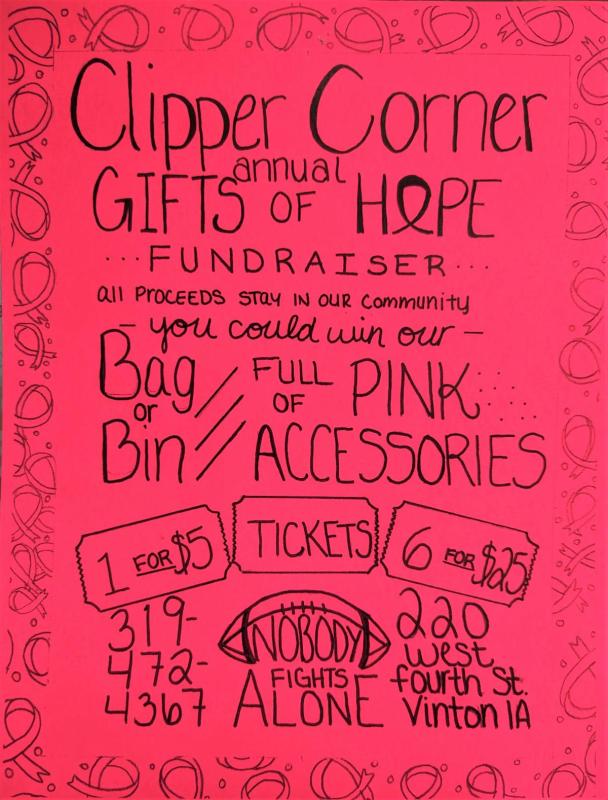 Clipper Corner
annual
GIFTS OF HOPE
···FUNDRAISER···
all PROCEEDS STAY IN OUR COMMUNITY
- you could win our -
Bag or Bin
FULL OF PINK
ACCESSORIES
1 FOR $5
TICKETS
6 FOR $25
319-
472-
4367
NOBODY
FIGHTS
ALONE
220
west
fourth St.
Vinton IA